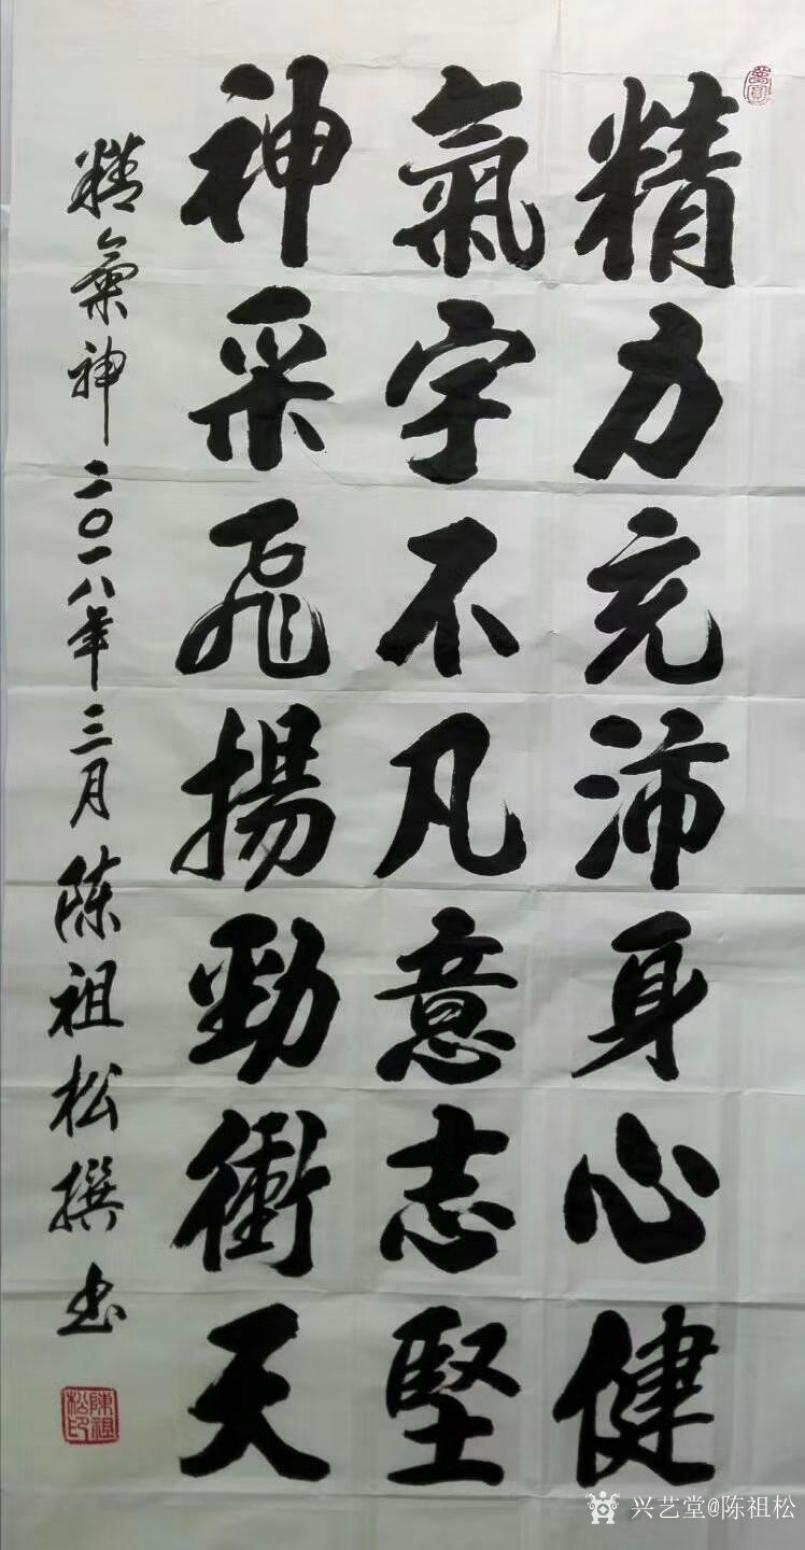 精力充沛身心健
氣宇不凡意志堅
神采飛揚勁衝天
精氣神二〇一八年三月陈祖松撰书
陳祖松印
兴艺堂@陈祖松